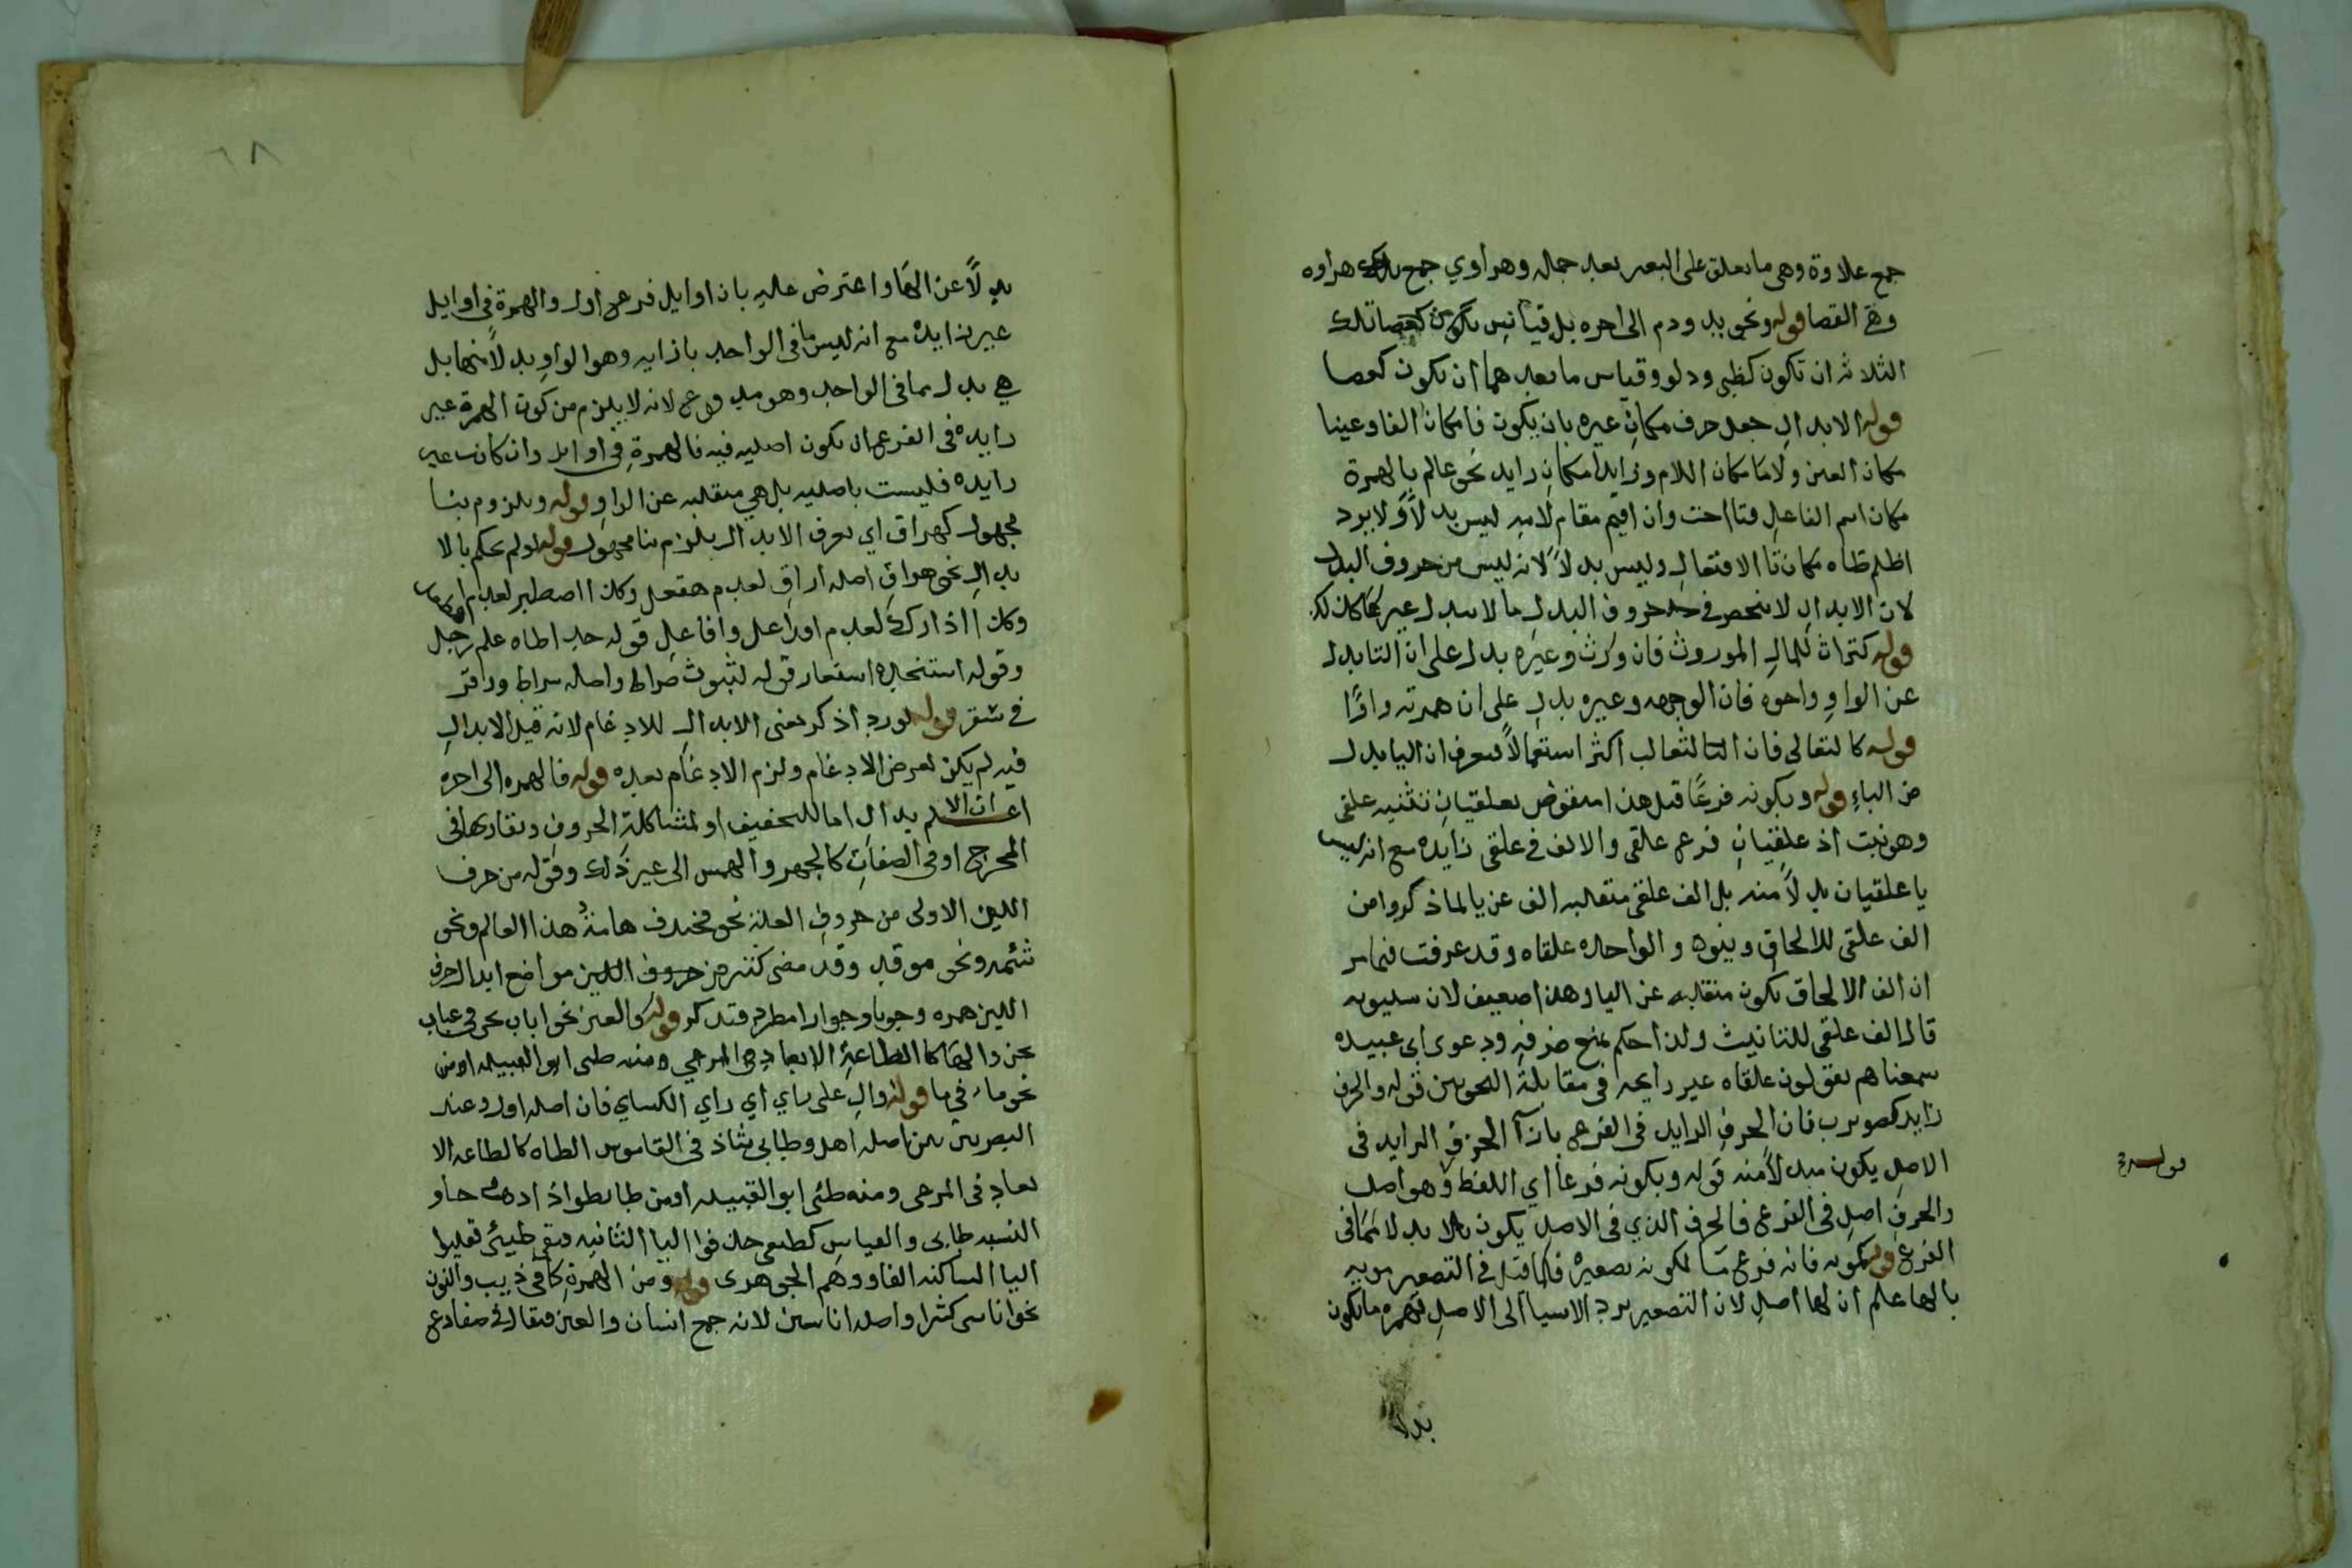 جمع علاوة وهي ما يعلق على البعير بعد حمله وهراوي جمع هراوه
وهي العصا قوله ونحو يد ودم الى اخره بل قياس تلك
الثلاثه ان تكون كظبي ودلو وقياس ما بعدهما ان تكون كعصا
قوله الابدال جعل حرف مكان غيره بان يكون فا مكان الفا وعينا
مكان العين ولاما مكان اللام وزايدا مكان زايد نحو عالم بالهمزة
مكان اسم الفاعل فتا اخت وان اقيم مقام لامه ليس بدلا ولا يرد
اظلم ظاه مكان تا الافتعال وليس بدلا لانه ليس من حروف البدل
لان الابدال لا ينحصر في حروف البدل
قوله كتراث للمال الموروث فان ورث وغيره يدل على ان التا بدل
عن الواو واجوه فان الوجه وغيره يدل على ان همزته واوا
قوله كالثعالى فان الثعالب اكثر استعمالا فيعرف ان اليا بدل
من الباء قوله وبكونه فرعا قيل هذا منقوض بعلقيان تثنيه علقى
وهو نبت اذ علقيان فرع علقى والالف في علقى زايده مع انه ليس
يا علقيان بدلا منه بل الف علقى منقلبه الف عن يا لما ذكروا من
الف علقى للالحاق وينون والواحده علقاه وقد عرفت فيما مر
ان الف الالحاق يكون منقلبه عن اليا وهذا ضعيف لان سيبويه
قال الف علقى للتانيث ولذا حكم بمنع صرفه ودعوى ابي عبيده
سمعناهم يقولون علقاه غير رايجه في مقابلة النحويين قوله والحرف
زايد كضويرب فان الحرف الزايد في الفرع بازآ الحرف الزايد في
الاصل يكون مبدلا منه قوله وبكونه فرعا اي اللفظ وهو اصل
والحرف اصل في الفرع فالحرف الذي في الاصل يكون بدلا مما في
الفرع قوله كمويه فانه فرع ما لكونه تصغيره فلما قيل في التصغير مويه
بالها علم ان الها اصل لان التصغير يرد الاشيا الى الاصل فهمزه ما تكون
بدلا
٦٨
بدلا عن الها واعترض عليه بان اوايل فرع اول والهمزة في اوايل
غير زايده مع انه ليس ما في الواحد بازايه وهو الواو بدلا منها بل
هي بدل مما في الواحد وهو مدفوع لانه لا يلزم من كون الهمزة غير
زايده في الفرع ان يكون اصليه فيه فالهمزة في اوايل وان كانت غير
زايده فليست باصليه بل هي منقلبه عن الواو قوله وبلزوم بنا
مجهول كهراق اي يعرف الابدال بلزوم بنا مجهول قوله لو لم يحكم بالا
بدال نحو هراق اصله اراق لعدم هفعل وكذا اصطبر لعدم
وكذا اذارك لعدم افاعل قوله حد اطاه علم رجل
وقوله استنجده استعار قوله لثبوت صراط واصله سراط وزقر
في سقر قوله لورد اذكر يعني الابدال للادغام لانه قيل الابدال
فيه لم يكن لعرض الادغام ولزم الادغام بعده قوله فالهمزه الى اخره
اعلم ان الابدال اما للتخفيف او لمشاكلة الحروف وتقاربها في
المخرج او في الصفات كالجهر والهمس الى غير ذلك وقوله من حرف
اللين الاولى من حروف العلة نحو فخندف هامة هذا العالم ونحو
شئمه ونحو موقد وقد مضى كثير من حروف اللين مواضع ابدال حرف
اللين همزه وجوبا وجوازا مطرد فتذكر قوله والعين نحو اباب بحر في عباب
بحر والها كا الطاعة الابعاد في المرعى ومنه طي ابو القبيله او من
نحو ماء في ما قوله وال على راي اي راي الكساي فان اصله اول وعند
البصريين اصله اهل وطايي شاذ في القاموس الطاه كالطاعه الا
بعاد في المرعى ومنه طئي ابو القبيله او من طا يطوا اذا ذهب وجاو
النسبه طايى والقياس كطيعي حذفوا اليا الثانيه فبقي طيئي فقلبوا
اليا الساكنه الفا ووهم الجوهري قوله ومن الهمزة كما في ذيب والنون
نحو اناسى كثيرا واصله اناسين لانه جمع انسان والعين فيقال في ضفادع